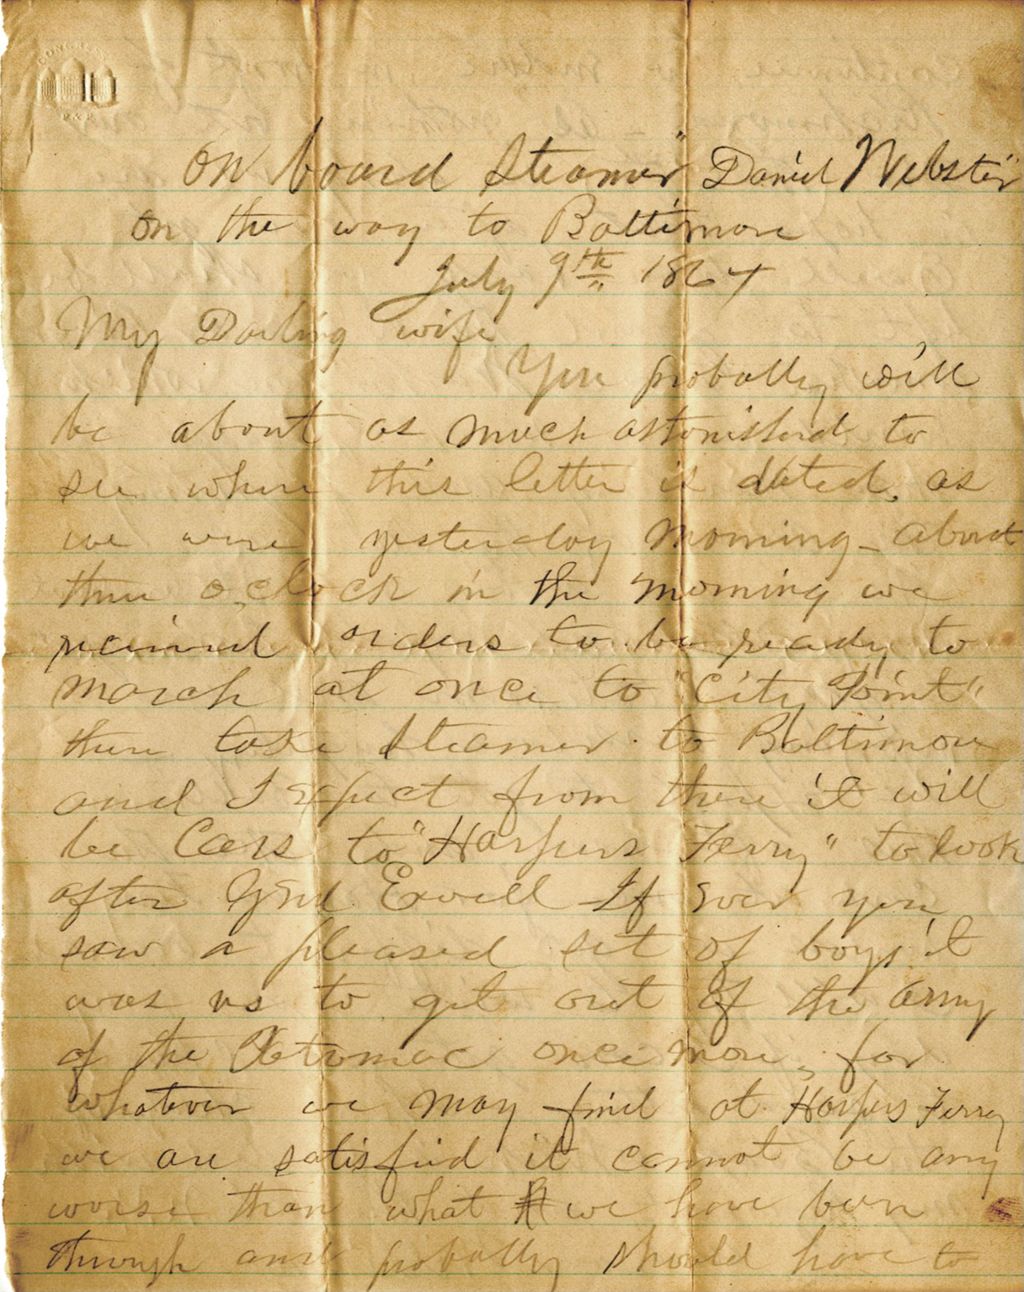 CONGRESS
P & P
On board Steamer "Daniel Webster"
on the way to Baltimore
July 9th 1864
My Darling wife
You probally will
be about as much astonished to
see where this letter is dated, as
we were yesterday morning - about
three o,clock in the morning we
recieved orders to be ready to
march at once to "City Point"
there take Steamer to Baltimore
and I expect from there it will
be Cars to "Harpers Ferry" to look
after Genl. Ewell If ever you
saw a pleased set of boys it
was us to get out of the Army
of the Potomac once more, for
whatever we may find at Harpers Ferry
we are satisfied it cannot be any
worse than what we have been
through and probally should have to